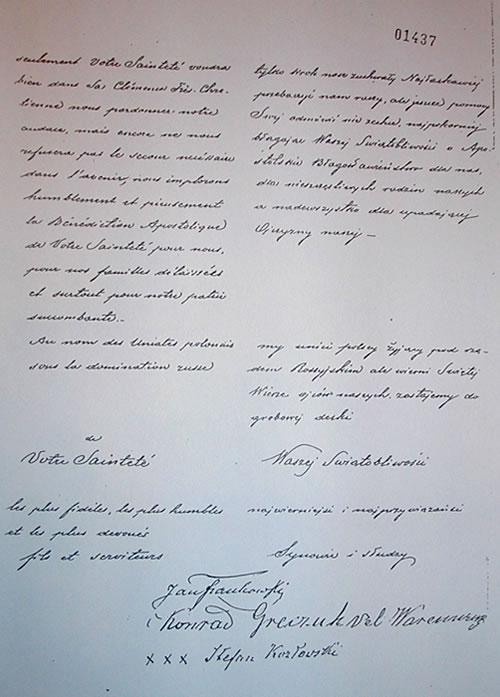 01437
seulement Votre Sainteté voudra
bien dans Sa Clémence Très-Chré-
tienne nous pardonner notre
audace, mais encore ne nous
refusera pas le secour nécessaire
dans l'avenir, nous implorons
humblement et pieusement
la Bénédiction Apostolique
de Votre Sainteté pour nous,
pour nos familles délaissées
et surtout pour notre patrie
succombante.-
Au nom des Uniates polonais
sous la domination russe
de
Votre Sainteté
les plus fidèles, les plus humbles
et les plus devoués
fils et serviteurs
tylko krok nasz zuchwały Najłaskawiej
przebaczyć nam raczy, ale jeszcze pomocy
Swej odmówić nie zechce, najpokorniej
błagając Waszej Świątobliwości o Apo-
stolskie Błogosławieństwo dla nas,
dla nieszczęśliwych rodzin naszych
a nadewszystko dla upadającej
Ojczyzny naszej -
my unici polscy żyjący pod rzą-
dem Rossyjskim ale wierni Świętej
Wierze ojców naszych, zostajemy do
grobowej deski
Waszej Świątobliwości
najwierniejsi i najprzywiązańsi
Synowie i słudzy
Jan Frankowski
i Konrad Greczuk vel
xxx Stefan Kozłowski